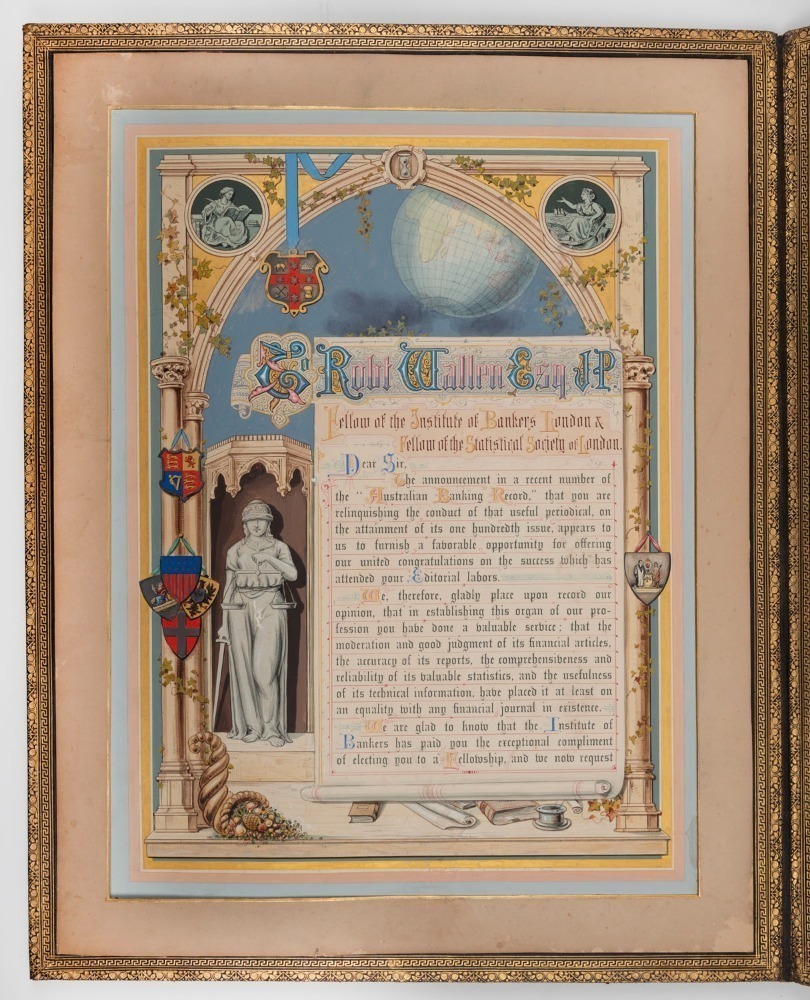 To Robt Wallen Esq J.P.
Fellow of the Institute of Bankers London &
Fellow of the Statistical Society of London.
Dear Sir,
The announcement in a recent number of
the "Australian Banking Record," that you are
relinquishing the conduct of that useful periodical, on
the attainment of its one hundredth issue, appears to
us to furnish a favorable opportunity for offering
our united congratulations on the success which has
attended your Editorial labors.
We, therefore, gladly place upon record our
opinion, that in establishing this organ of our pro-
fession you have done a valuable service; that the
moderation and good judgment of its financial articles,
the accuracy of its reports, the comprehensiveness and
reliability of its valuable statistics, and the usefulness
of its technical information, have placed it at least on
an equality with any financial journal in existence.
We are glad to know that the Institute of
Bankers has paid you the exceptional compliment
of electing you to a Fellowship, and we now request